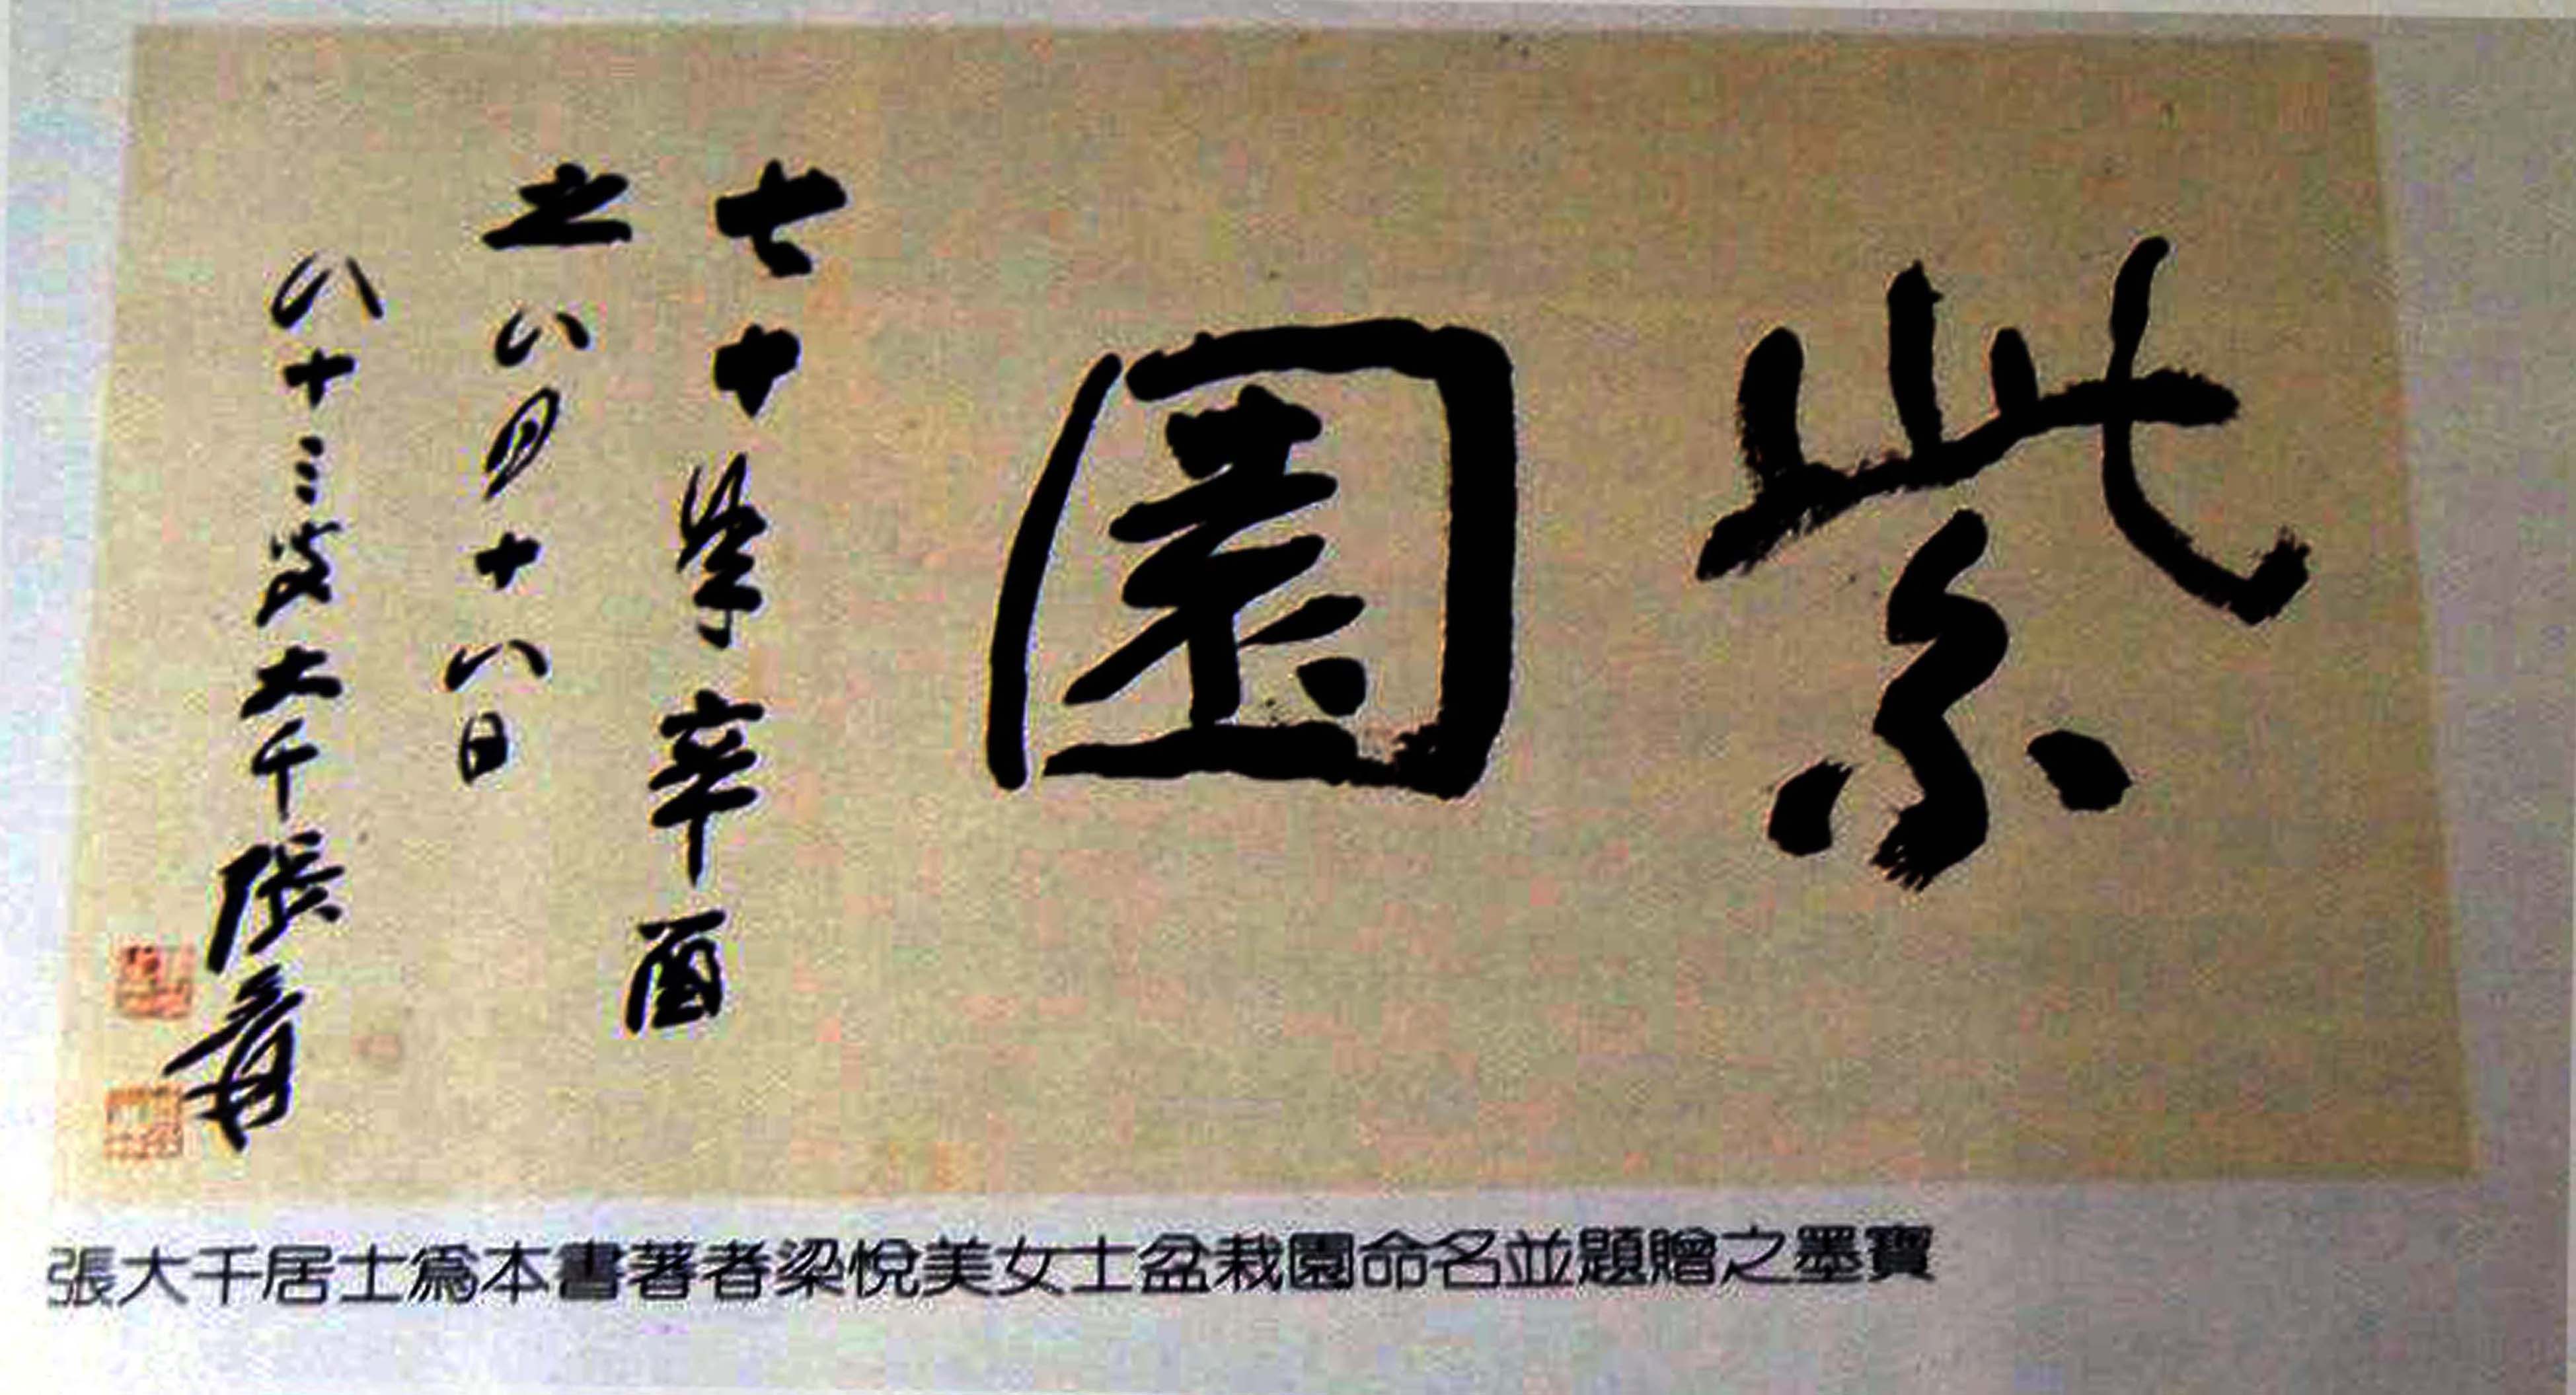 紫園
七十年辛酉
之八月十八日
八十三叟大千張爰
張大千居士為本書著者梁悅美女士盆栽園命名並題贈之墨寶